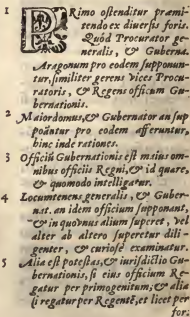 1 PRimo ostenditur præmi-
tendo ex diuersis foris.
Quòd Procurator ge-
neralis, & Guberna.
Aragonum pro eodem supponun-
tur, similiter gerens vices Procu-
ratoris, & Regens officium Gu-
bernationis.
2 Maiordomus, & Gubernator an sup
poãntur pro eodem afferuntur,
hinc inde rationes.
3 Officiũ Gubernationis est maius om-
nibus officijs Regni, & id quare,
& quomodo intelligatur.
4 Locumtenens generalis, & Guber-
nat. an idem officium supponant,
& in quo vnus alium superet, vel
alter ab altero superetur dili-
genter, & curiosè examinatur.
5 Alia est potestas, & iurisdictio Gu-
bernationis, si eius officium Re-
gatur per primogenitum, & alia
si regatur per Regentẽ, et licet per
for.